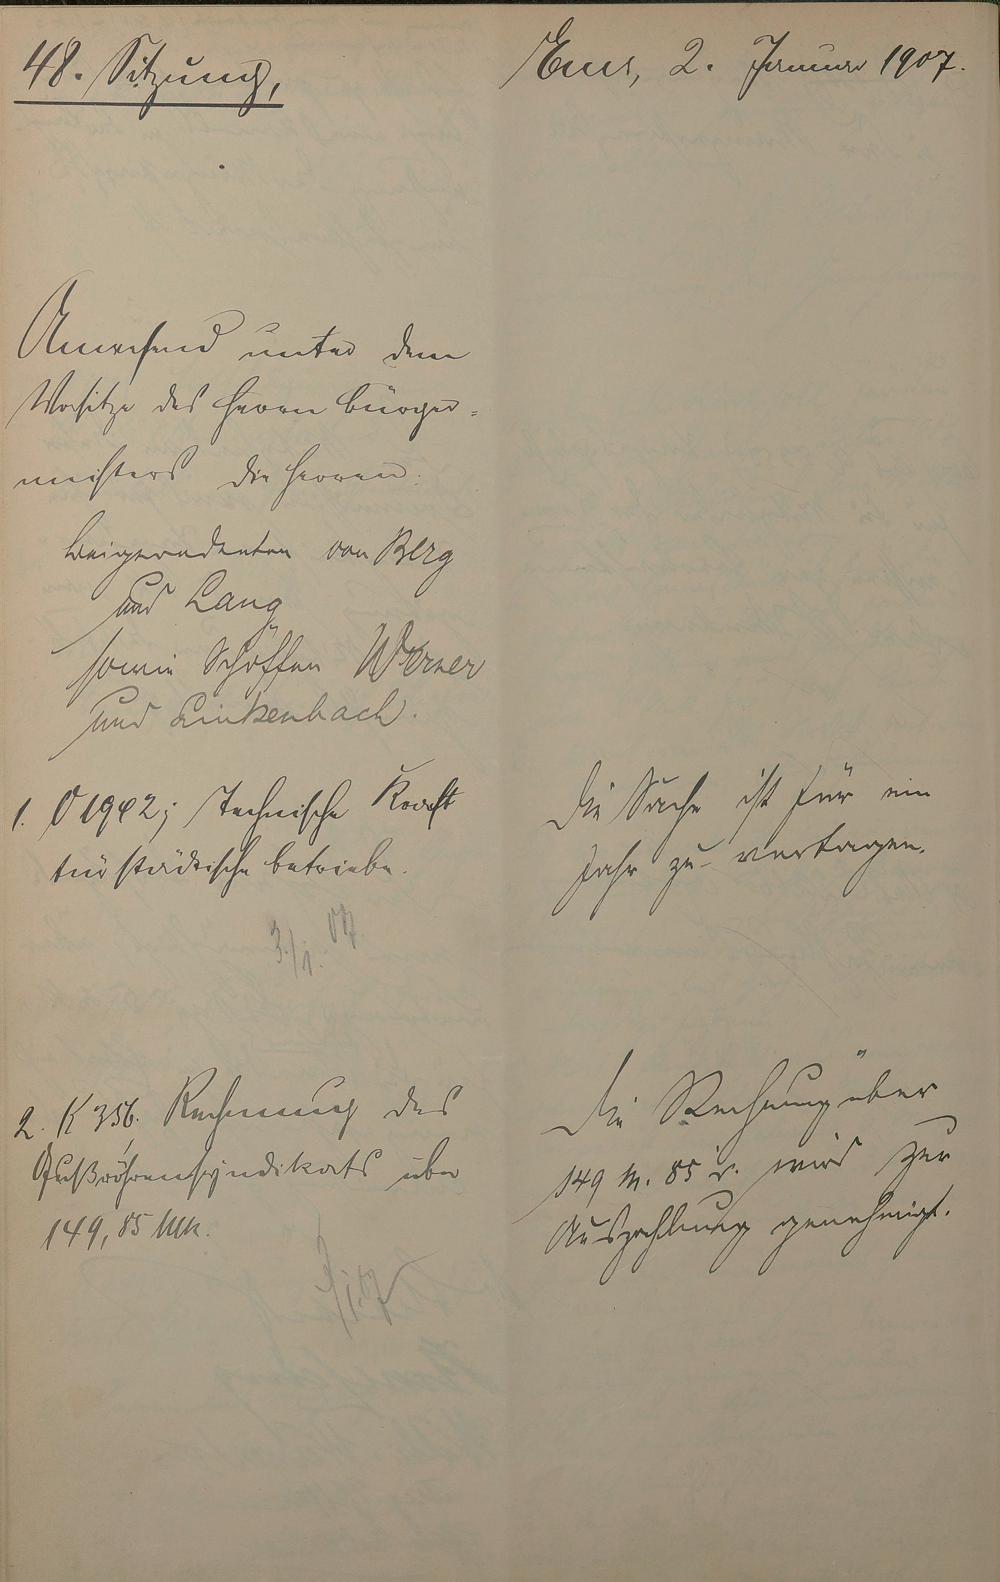 48. Sitzung,
Ems, 2. Januar 1907.
Anwesend unter dem
Vorsitze des Herrn Bürger-
meisters die Herren:
Beigeordneten von Berg
und Lang
sowie Schöffen Werner
und Linkenbach.
1. O 1942; Technische Kraft
für städtische Betriebe.
3./1. 07.
Die Sache ist für ein
Jahr zu vertagen.
2. K 356. Rechnung des
Gußröhrensyndikats über
149,85 Mk.
Die Rechnung über
149 M. 85 d. wird zur
Auszahlung genehmigt.